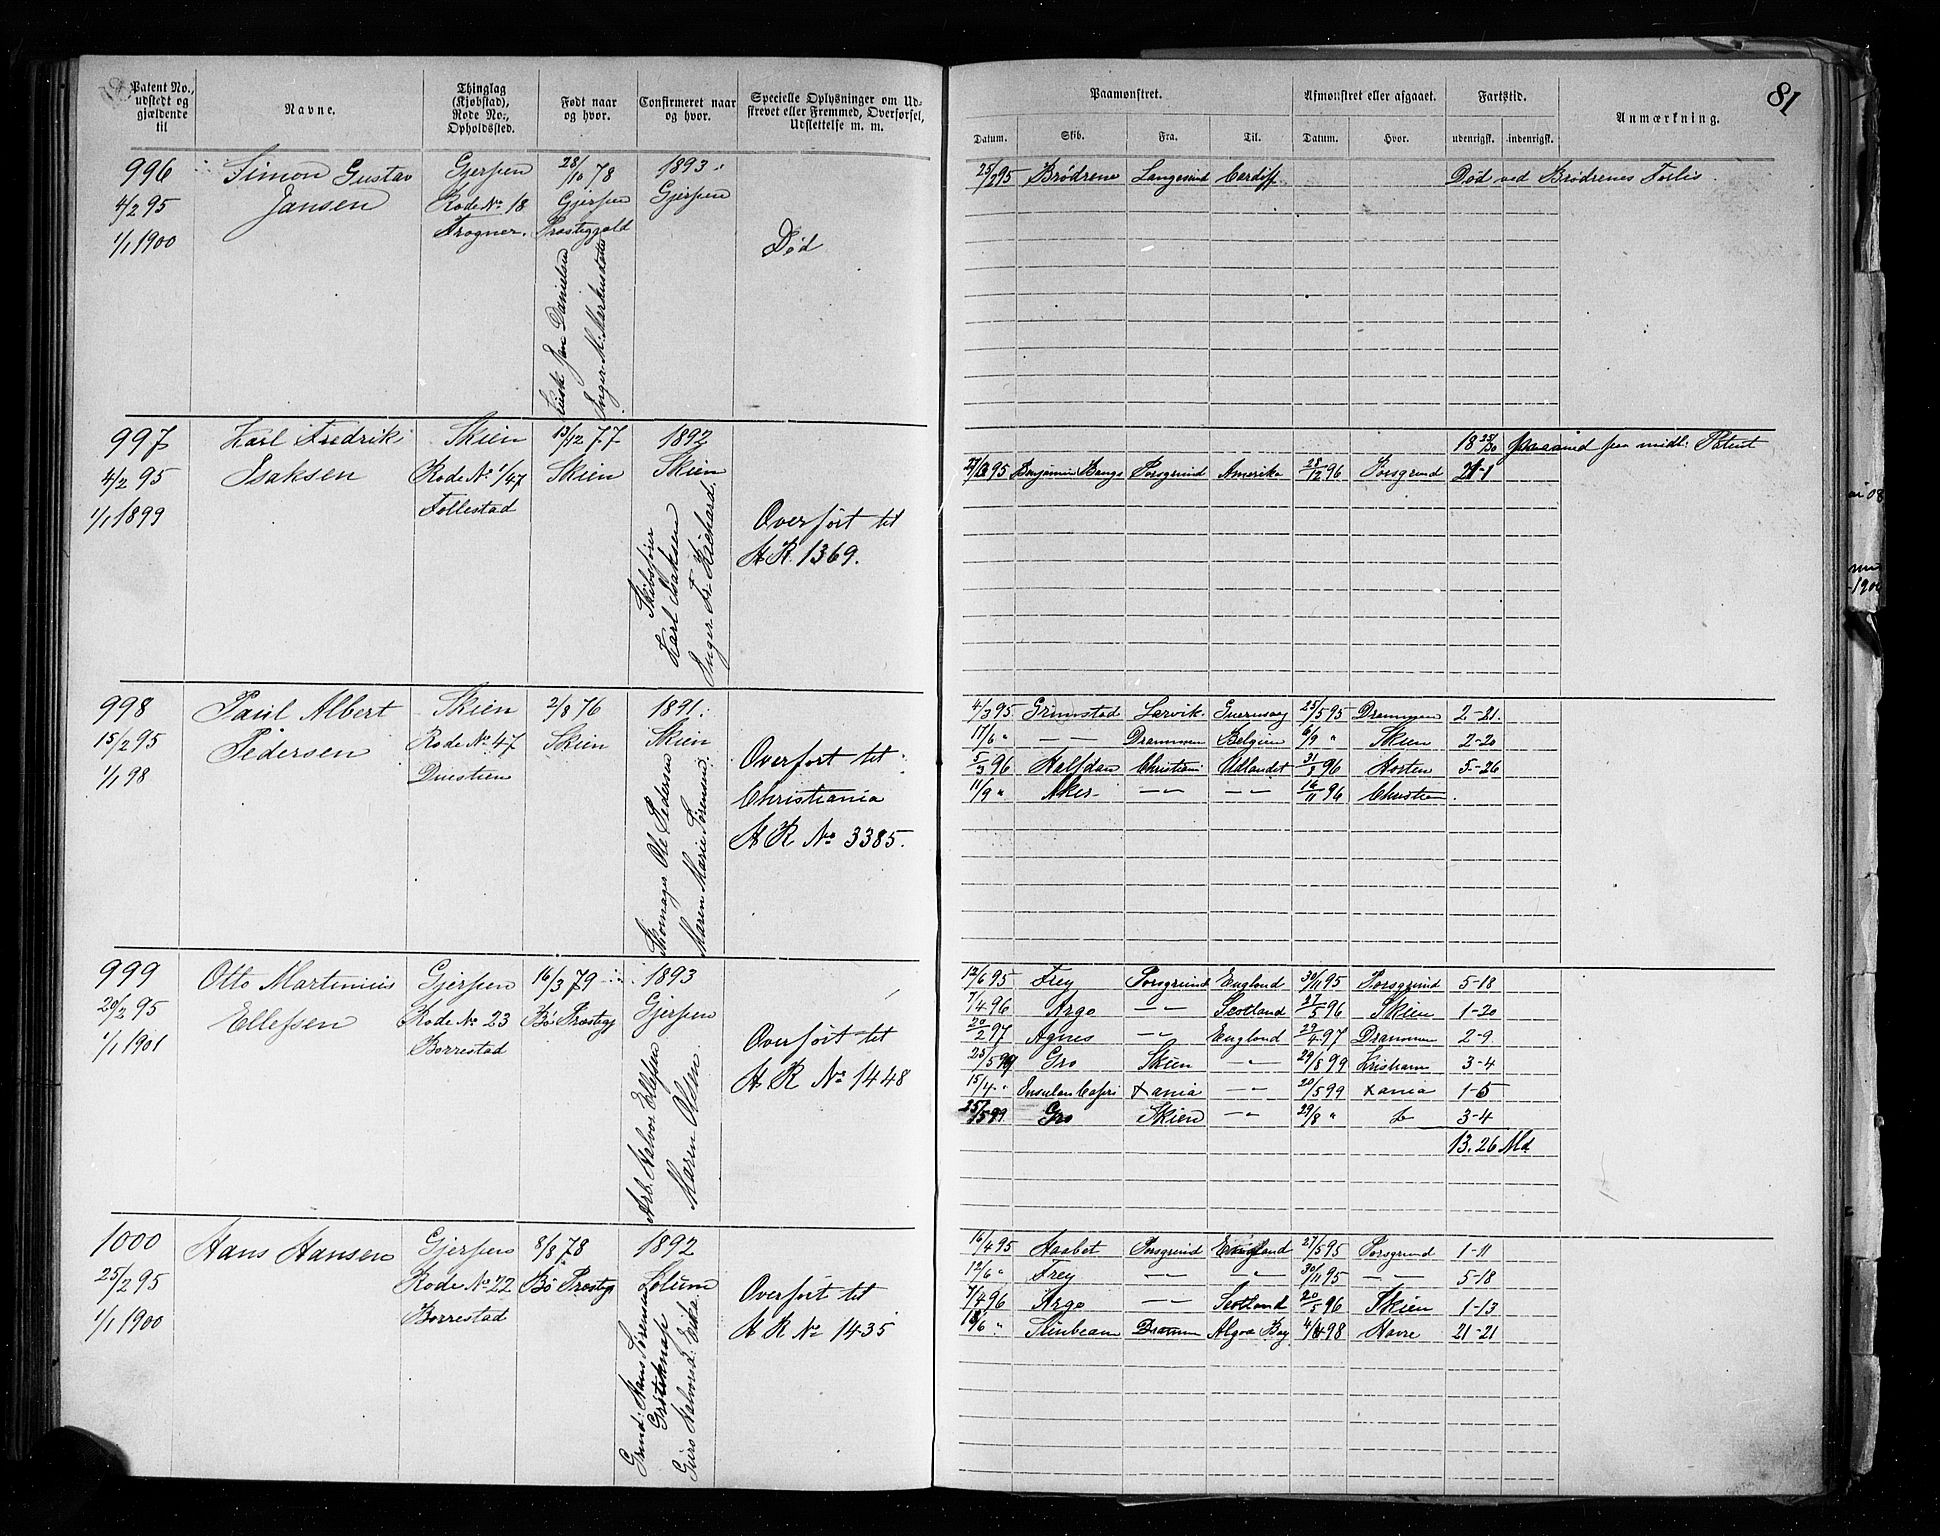 81
Patent No., udstedt og gjældende til
Navne.
Thinglag (Kjøbstad), Rode No., Opholdssted.
Født naar og hvor.
Confirmeret naar og hvor.
Specielle Oplysninger om Udskrevet eller Fremmed, Overførsel, Udslettelse m. m.
Paamønstret.
Afmønstret eller afgaaet.
Fartstid.
Anmærkning.
Datum. Skib. Fra. Til. Datum. Hvor. udenrigsk. indenrigsk.
996 Simon Gustav Gjerpen 28/10 78 1893
4/2 95 Jansen Rode No 18 Gjerpen Gjerpen
1/1 1900 Frogner. Præstegjæld
Død
Jan Danielsen
Inger M. Markusdatter
25/2 95 Brødrene Langesund Cardiff Død ved Brødrenes Forlis.
997 Karl Fredrik Skien 13/12 77 1892
4/2 95 Isaksen Rode No 1/47 Skien Skien
1/1 1899 Follestad
Overført til
A R. 1369.
Skibsfører
Karl Isaksen
Inger Fr. Richard.
Patent
95 Benjamin Bangs Porsgrund Amerika 28/12 96 Porsgrund 21-1
998 Paul Albert Skien 2/8 76 1891.
15/2 95 Pedersen Rode No 47 Skien Skien
1/1 98
Overført til
Christiania
A R No 3385.
Skomager Ole Pedersen
Karen Marie Sørensen
4/3 95 Grimstad Larvik Guernsay 25/5 95 Drammen 2-21
17/6 " — — Drammen Belgien 6/9 " Skien 2-20
5/3 96 Halfdan Christiani Udlandet 31/8 96 Horten 5-26
11/9 " Aker — — — — 14/11 96 Christian
999 Otto Martinius Gjerpen 16/3 79 1893
20/2 95 Ellefsen Rode No 23 Bø Præstegj Gjerpen
1/1 1901 Borrestad
Overført til
A R No 1448
Arb. Halvor Ellefsen
Maren Olsen
12/6 95 Frey Porsgrund England 30/11 95 Porsgrund 5-18
7/4 96 Argo — — Scotland 27/5 96 Skien 1-20
20/2 97 Agnes — — England 29/4 97 Drammen 2-9
25/5 99 Gro Skien — — 29/8 99 Kristiania 3-4
15/4 " Insulan Capri Xania — — 20/5 99 Xania 1-5
25/5 99 Gro Skien — — 29/8 " 3-4
13.26 Md
1000 Hans Hansen Gjerpen 8/8 78 1892
25/2 95 Rode No 22 Bø Præstegj Solum
1/1 1900 Borrestad
Overført til
A R No 1435
Hans Sørensen
Grotsknap
Guro Halvorsd. Eika
16/4 95 Haabet Porsgrund England 27/5 95 Porsgrund 1-11
12/6 " Frey — — — — 30/11 95 — — 5-18
7/4 96 Argo — — Scotland 20/5 96 Skien 1-13
18/6 " Sunbeam Dramm Algoa Bay 4/4 98 Havre 21-21